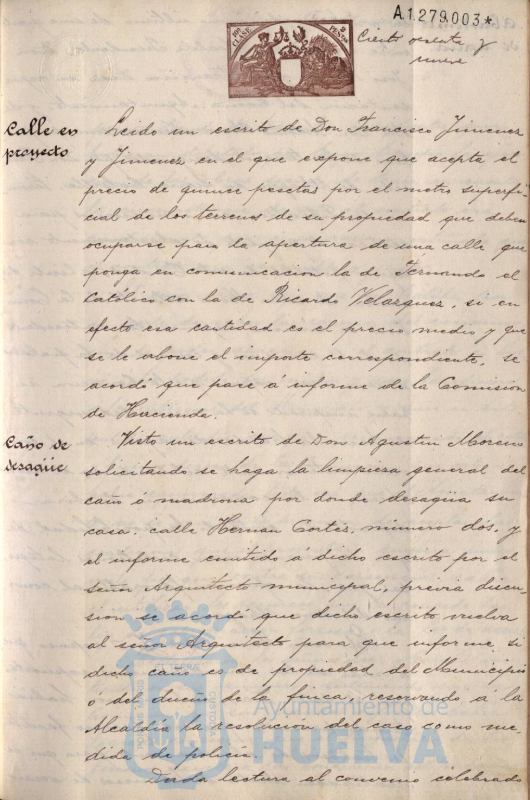 A1.279.003*
Ciento sesenta y
nueve
Calle en
proyecto
Leido un escrito de Don Francisco Jimenez
y Jimenez en el que expone que acepta el
precio de quince pesetas por el metro superfi-
cial de los terrenos de su propiedad que deben
ocuparse para la apertura de una calle que
ponga en comunicacion la de Fernando el
Católico con la de Ricardo Velazquez, si en
efecto esa cantidad es el precio medio y que
se le abone el importe correspondiente, se
acordó que pase á informe de la Comision
de Hacienda.
Caño de
desagüe
Visto un escrito de Don Agustin Moreno
solicitando se haga la limpieza general del
caño ó madrona por donde desagüa su
casa, calle Hernan Cortés, número dos, y
el informe emitido á dicho escrito por el
señor Arquitecto municipal, previa discu-
sion se acordó que dicho escrito vuelva
al señor Arquitecto para que informe si
dicho caño es de propiedad del Municipio
ó del dueño de la finca, reservando á la
Alcaldía la resolución del caso como me-
dida de policía.
Dada lectura al convenio celebrado
Ayuntamiento de
HUELVA